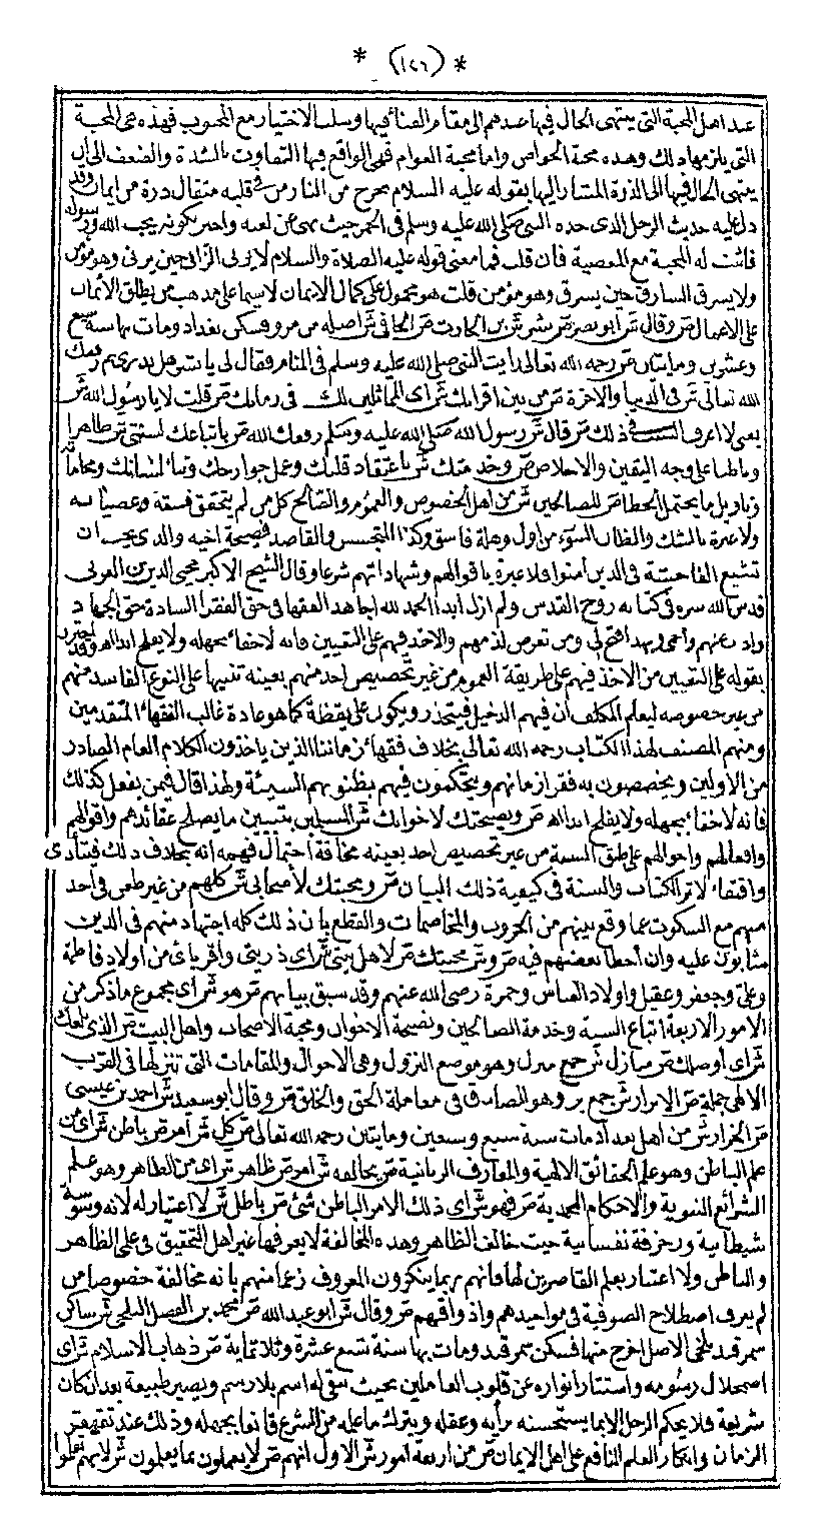 * (١٤٦) *
عند اهل المحبة التى ينتهى الحال فيها عندهم الى مقام الفنا فيها وسلب الاختيار مع المحبوب فهذه هى المحبة
التى يلزمها ذلك وهذه محبة الخواص واما محبة العوام فهى الواقع فيها التفاوت بالشدة والضعف الى ان
ينتهى الحال فيها الى الذرة المشار اليها بقوله عليه السلام يخرج من النار من فى قلبه مثقال ذرة من ايمان وقد
دل عليه حديث الرجل الذى حده النبى صلى الله عليه وسلم فى الخمر حيث نهى عن لعنه واخبر بكونه يحب الله ورسوله
فاثبت له المحبة مع المعصية فان قلت فما معنى قوله عليه الصلاة والسلام لا يزنى الزانى حين يزنى وهو مؤمن
ولا يسرق السارق حين يسرق وهو مؤمن قلت هو محمول على كمال الايمان لا سيما على مذهب من يطلق الايمان
على الاعمال ص وقال ش ابو نصر ص بشر ش بن الحارث ص الحافى ش اصله من مرو وسكن بغداد ومات بها سنة سبع
وعشرين ومايتان ص رحمه الله تعالى رايت النبى صلى الله عليه وسلم فى المنام فقال لى يا بشر هل تدرى بم رفعك
الله تعالى ش فى الدنيا والاخرة ص من بين اقرانك ش اى المماثلين لك فى زمانك ص قلت لا يا رسول الله ش
يعنى لا اعرف السبب فى ذلك ص قال ش رسول الله صلى الله عليه وسلم رفعك الله ص باتباعك لسنتى ش ظاهرا
وباطنا على وجه اليقين والاخلاص ص وخدمتك ش باعتقاد قلبك وعمل جوارحك وثناء لسانك ومحاماة
وتاويل ما يحتمل الخطا ص للصالحين ش من اهل الخصوص والعموم والصالح كل من لم يتحقق فسقه وعصيانه
ولا عبرة بالشك والظان السوء من اول وهلة فاسق وكذا المتجسس والقاصد فضيحة اخيه والذى يحب ان
تشيع الفاحشة فى الذين امنوا فلا عبرة باقوالهم وشهاداتهم شرعا وقال الشيخ الاكبر محيى الدين بن العربى
قدس الله سره فى كتابه روح القدس ولم ازل ابدا الحمد لله اجاهد الفقها فى حق الفقرا السادة حق الجهاد
واذب عنهم واحمى وبهذا فتح لى ومن تعرض لذمهم والاخذ فيهم على التعيين فانه لا خفاء بجهله ولا يفلح ابدا اه وقد احترز
بقوله على التعيين من الاخذ فيهم على طريقة العموم من غير تخصيص احد منهم بعينه تنبيها على النوع الفاسد منهم
من غير خصوصه ليعلم المكلف ان فيهم الدخيل فيتحذر ويكون على يقظة كما هو عادة غالب الفقهاء المتقدمين
ومنهم المصنف لهذا الكتاب رحمه الله تعالى بخلاف فقهاء زماننا الذين ياخذون الكلام العام الصادر
من الاولين ويخصصون به فقرا زمانهم ويحكمون فيهم بظنونهم السيئة ولهذا قال فيمن يفعل كذلك
فانه لا خفاء بجهله ولا يفلح ابدا اه ص ونصيحتك لاخوانك ش المسلمين بتبيين ما يصلح عقائدهم واقوالهم
وافعالهم واحوالهم على طبق السنة من غير تخصيص احد بعينه مخافة احتمال فهمه انه بخلاف ذلك فيتأذى
واقتفاء لاثر الكتاب والسنة فى كيفية ذلك البيان ص ومحبتك لاصحابى ش كلهم من غير طعن فى احد
منهم مع السكوت عما وقع بينهم من الحروب والمخاصمات والقطع بان ذلك كله اجتهاد منهم فى الدين
مثابون عليه وان اخطا بعضهم فيه ص و ش محبتك ص لاهل بيتى ش اى ذريتى واقربائى من اولاد فاطمة
وعلى وجعفر وعقيل واولاد العباس وحمزة رضى الله عنهم وقد سبق بيانهم ص هو ش اى مجموع ما ذكر من
الامور الاربعة اتباع السنة وخدمة الصالحين ونصيحة الاخوان ومحبة الاصحاب واهل البيت ص الذى بلغك
ش اى أوصلك ص منازل ش جمع منزل وهو موضع النزول وهى الاحوال والمقامات التى تنزلها فى القرب
الالهى جملة ص الابرار ش جمع بر وهو الصادق فى معاملة الحق والخلق ص وقال ابو سعيد ش احمد بن عيسى
ص الخراز ش من اهل بغداد مات سنة سبع وسبعين ومايتان رحمه الله تعالى ص كل ش امر ص باطن ش اى من
علم الباطن وهو علم الحقائق الالهية والمعارف الربانية ص يخالفه ش امر ص ظاهر ش اى من الظاهر وهو علم
الشرائع النبوية والاحكام المحمدية ص فهو ش اى ذلك الامر الباطن شئ ص باطل ش لا اعتبار له لانه وسوسة
شيطانية وزخرفة نفسانية حيث خالف الظاهر وهذه المخالفة لا يعرفها غير اهل التحقيق فى علمى الظاهر
والباطن ولا اعتبار بعلم القاصرين لها فانهم ربما ينكرون المعروف زعما منهم بانه مخالفة خصوصا من
لم يعرف اصطلاح الصوفية فى مواجيدهم واذواقهم ص وقال ش ابو عبد الله ص محمد بن الفضل البلخى ش ساكن
سمرقند بلخى الاصل اخرج منها فسكن سمرقند ومات بها سنة تسع عشرة وثلاثمائة ص ذهاب الاسلام ش اى
اضمحلال رسومه واستتار انواره عن قلوب العاملين بحيث يبقى له اسم بلا رسم ويصير طبيعة بعد ان كان
شريعة فلا يحكم الرجل الا بما يستحسنه برأيه وعقله ويترك ما علمه من الشرع قانعا بجهله وذلك عند تقهقر
الزمان وانكار العلم النافع على اهل الايمان ص من اربعة امور ش الاول انهم ص لا يعملون بما يعلمون ش لانهم تعلموا